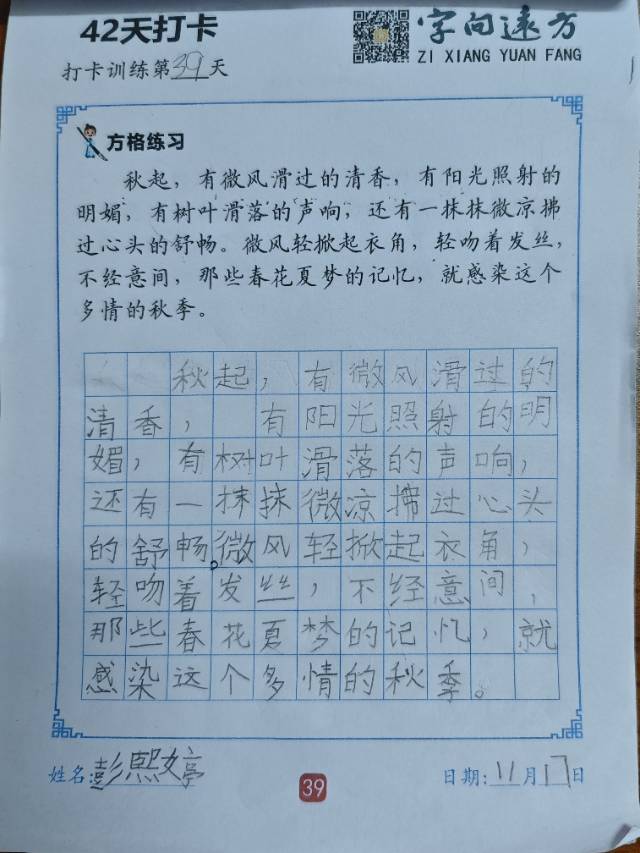 42天打卡
字向远方
ZI XIANG YUAN FANG
打卡训练第39天
方格练习
秋起，有微风滑过的清香，有阳光照射的
明媚，有树叶滑落的声响，还有一抹抹微凉拂
过心头的舒畅。微风轻掀起衣角，轻吻着发丝，
不经意间，那些春花夏梦的记忆，就感染这个
多情的秋季。
秋起，有微风滑过的
清香，有阳光照射的明
媚，有树叶滑落的声响，
还有一抹抹微凉拂过心头
的舒畅。微风轻掀起衣角，
轻吻着发丝，不经意间，
那些春花夏梦的记忆，就
感染这个多情的秋季。
姓名:彭熙婷
39
日期:11月17日